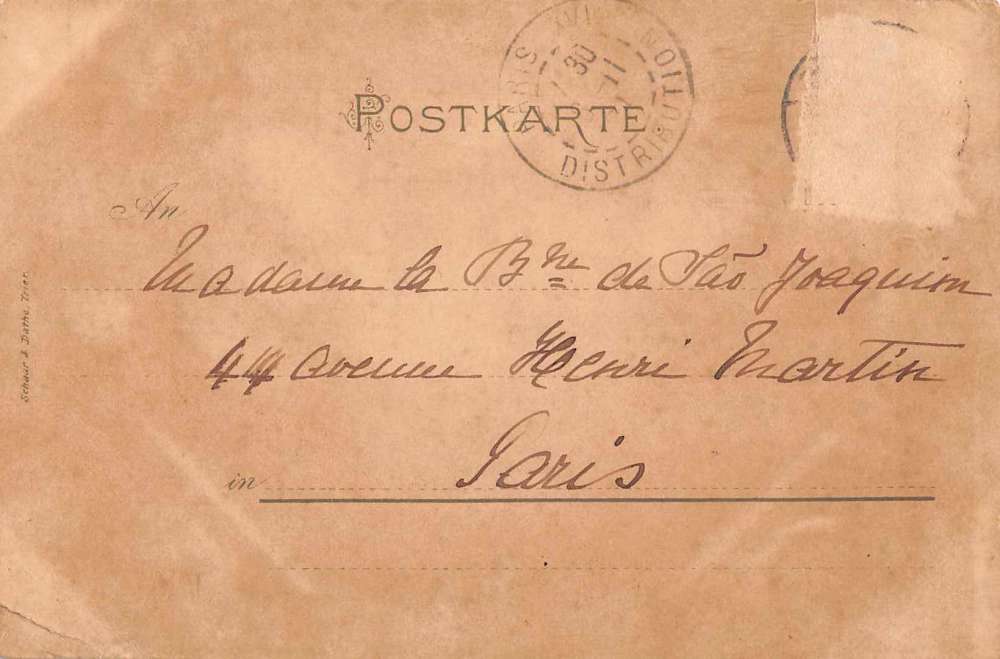 POSTKARTE
PARIS DISTRIBUTION
30
11
An
Madame la Bne de São Joaquim
44 avenue Henri Martin
in Paris
Schaar & Dathe, Trier.